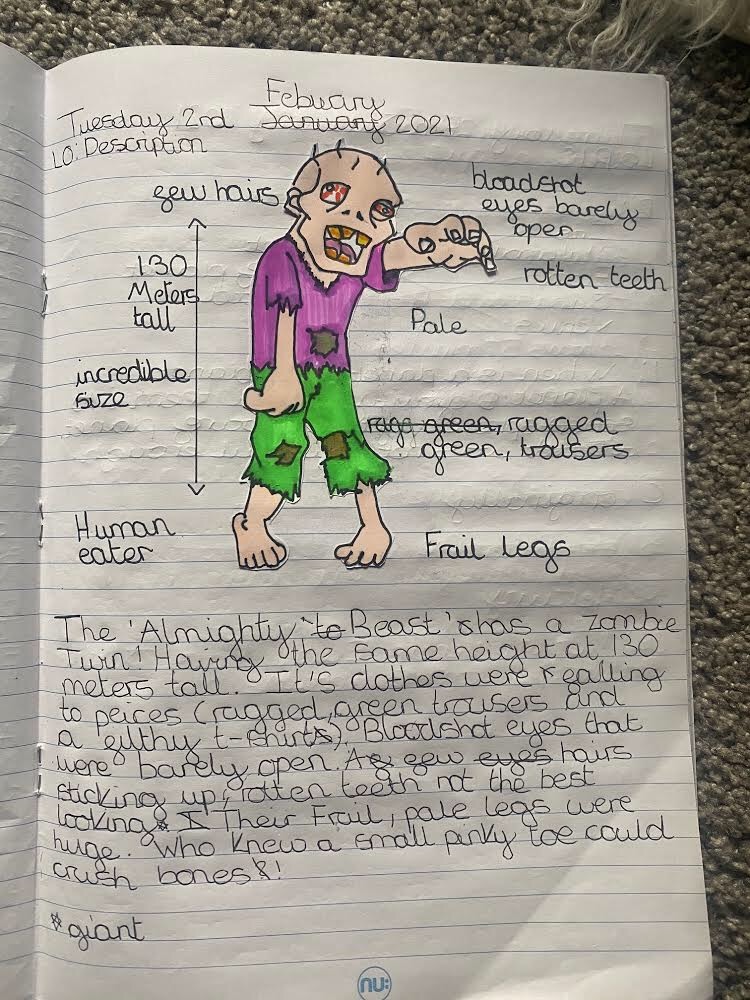 Febuary
Tuesday 2nd January 2021
LO: Description
few hairs
bloodshot
eyes barely
open
130
Meters
tall
rotten teeth
Pale
incredible
size
rage green, ragged
green, trousers
Human
eater
Frail legs
The 'Almighty to Beast' has a zombie
Twin! Having the same height at 130
meters tall. It's clothes were falling
to peices (ragged, green trousers and
a filthy t-shirt), Bloodshot eyes that
were barely open. A few eyes hairs
sticking up, rotten teeth not the best
looking* Their Frail, pale legs were
huge. Who knew a small pinky toe could
crush bones!
*giant
nu: